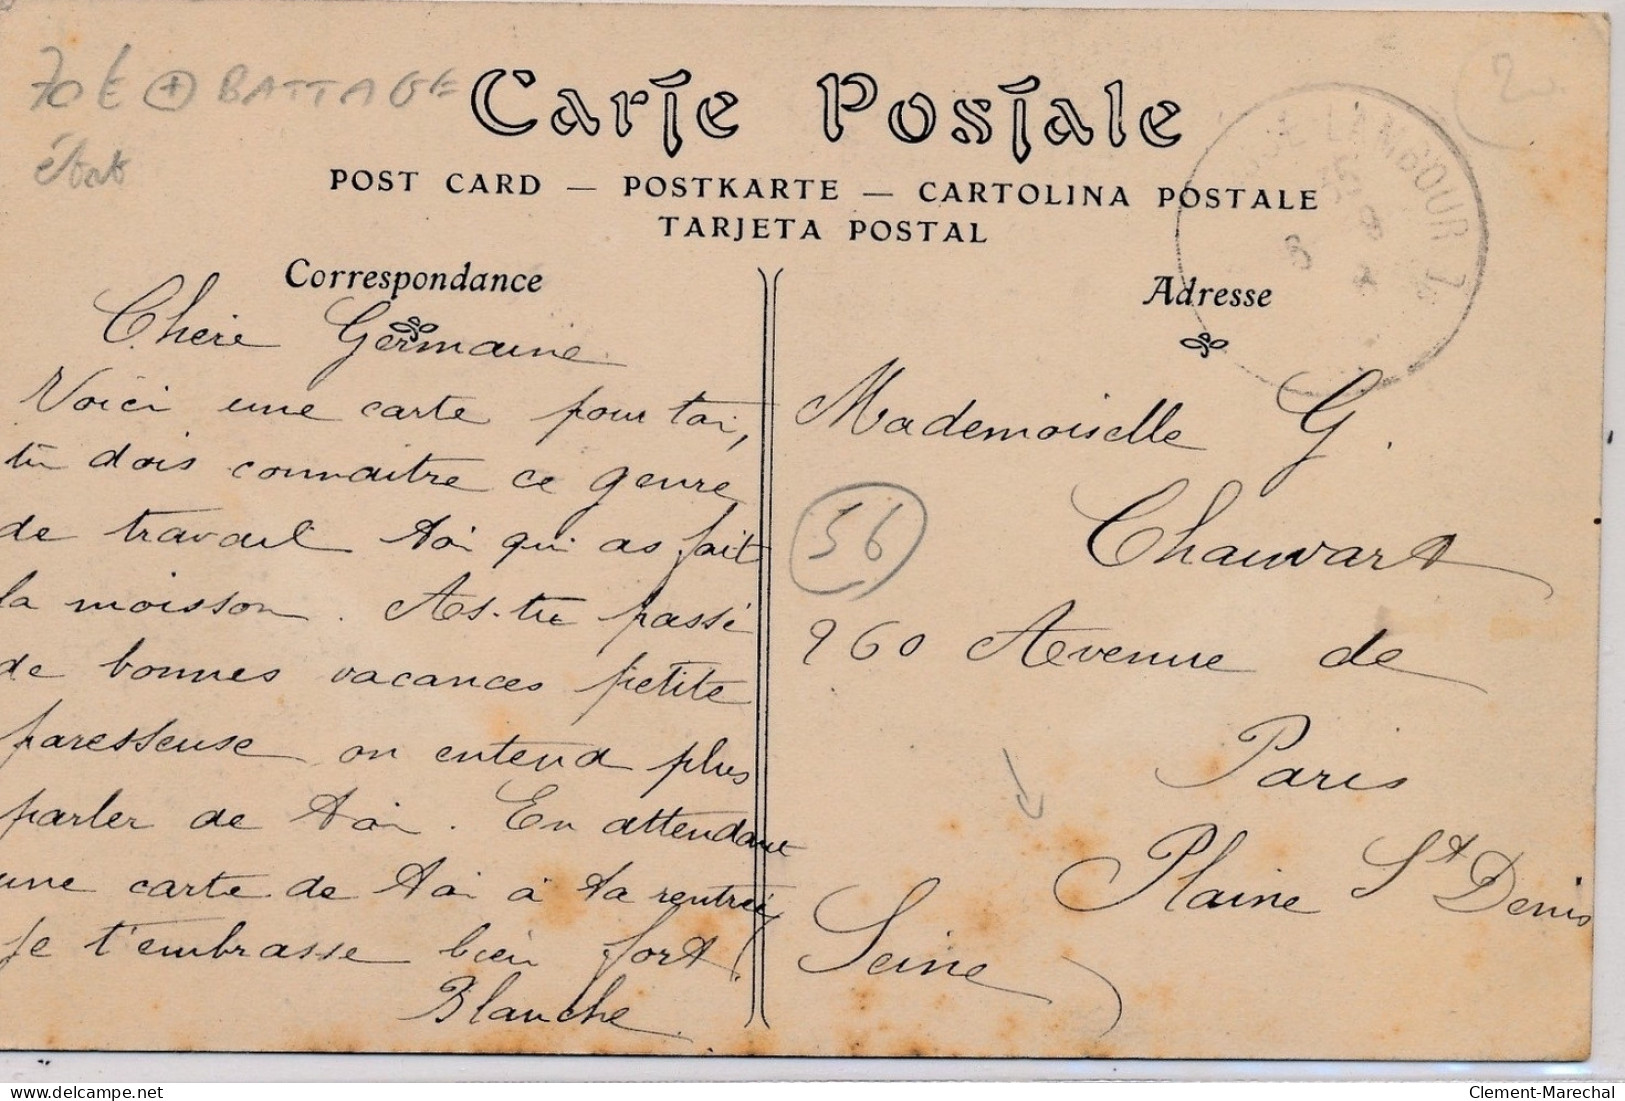 70€ + BATTAGE
état
2
Carte Postale
POST CARD — POSTKARTE — CARTOLINA POSTALE
TARJETA POSTAL
LAMBOUR
Correspondance
Chère Germaine
Voici une carte pour toi,
tu dois connaitre ce genre
de travail toi qui as fait
la moisson. As-tu passé
de bonnes vacances petite
paresseuse on entend plus
parler de toi. En attendant
une carte de toi à ta rentrée
je t'embrasse bien fort.
Blanche
Adresse
Mademoiselle G.
Chauvart
56
260 Avenue de
Paris
Plaine St Denis
Seine
Clement-Marechal